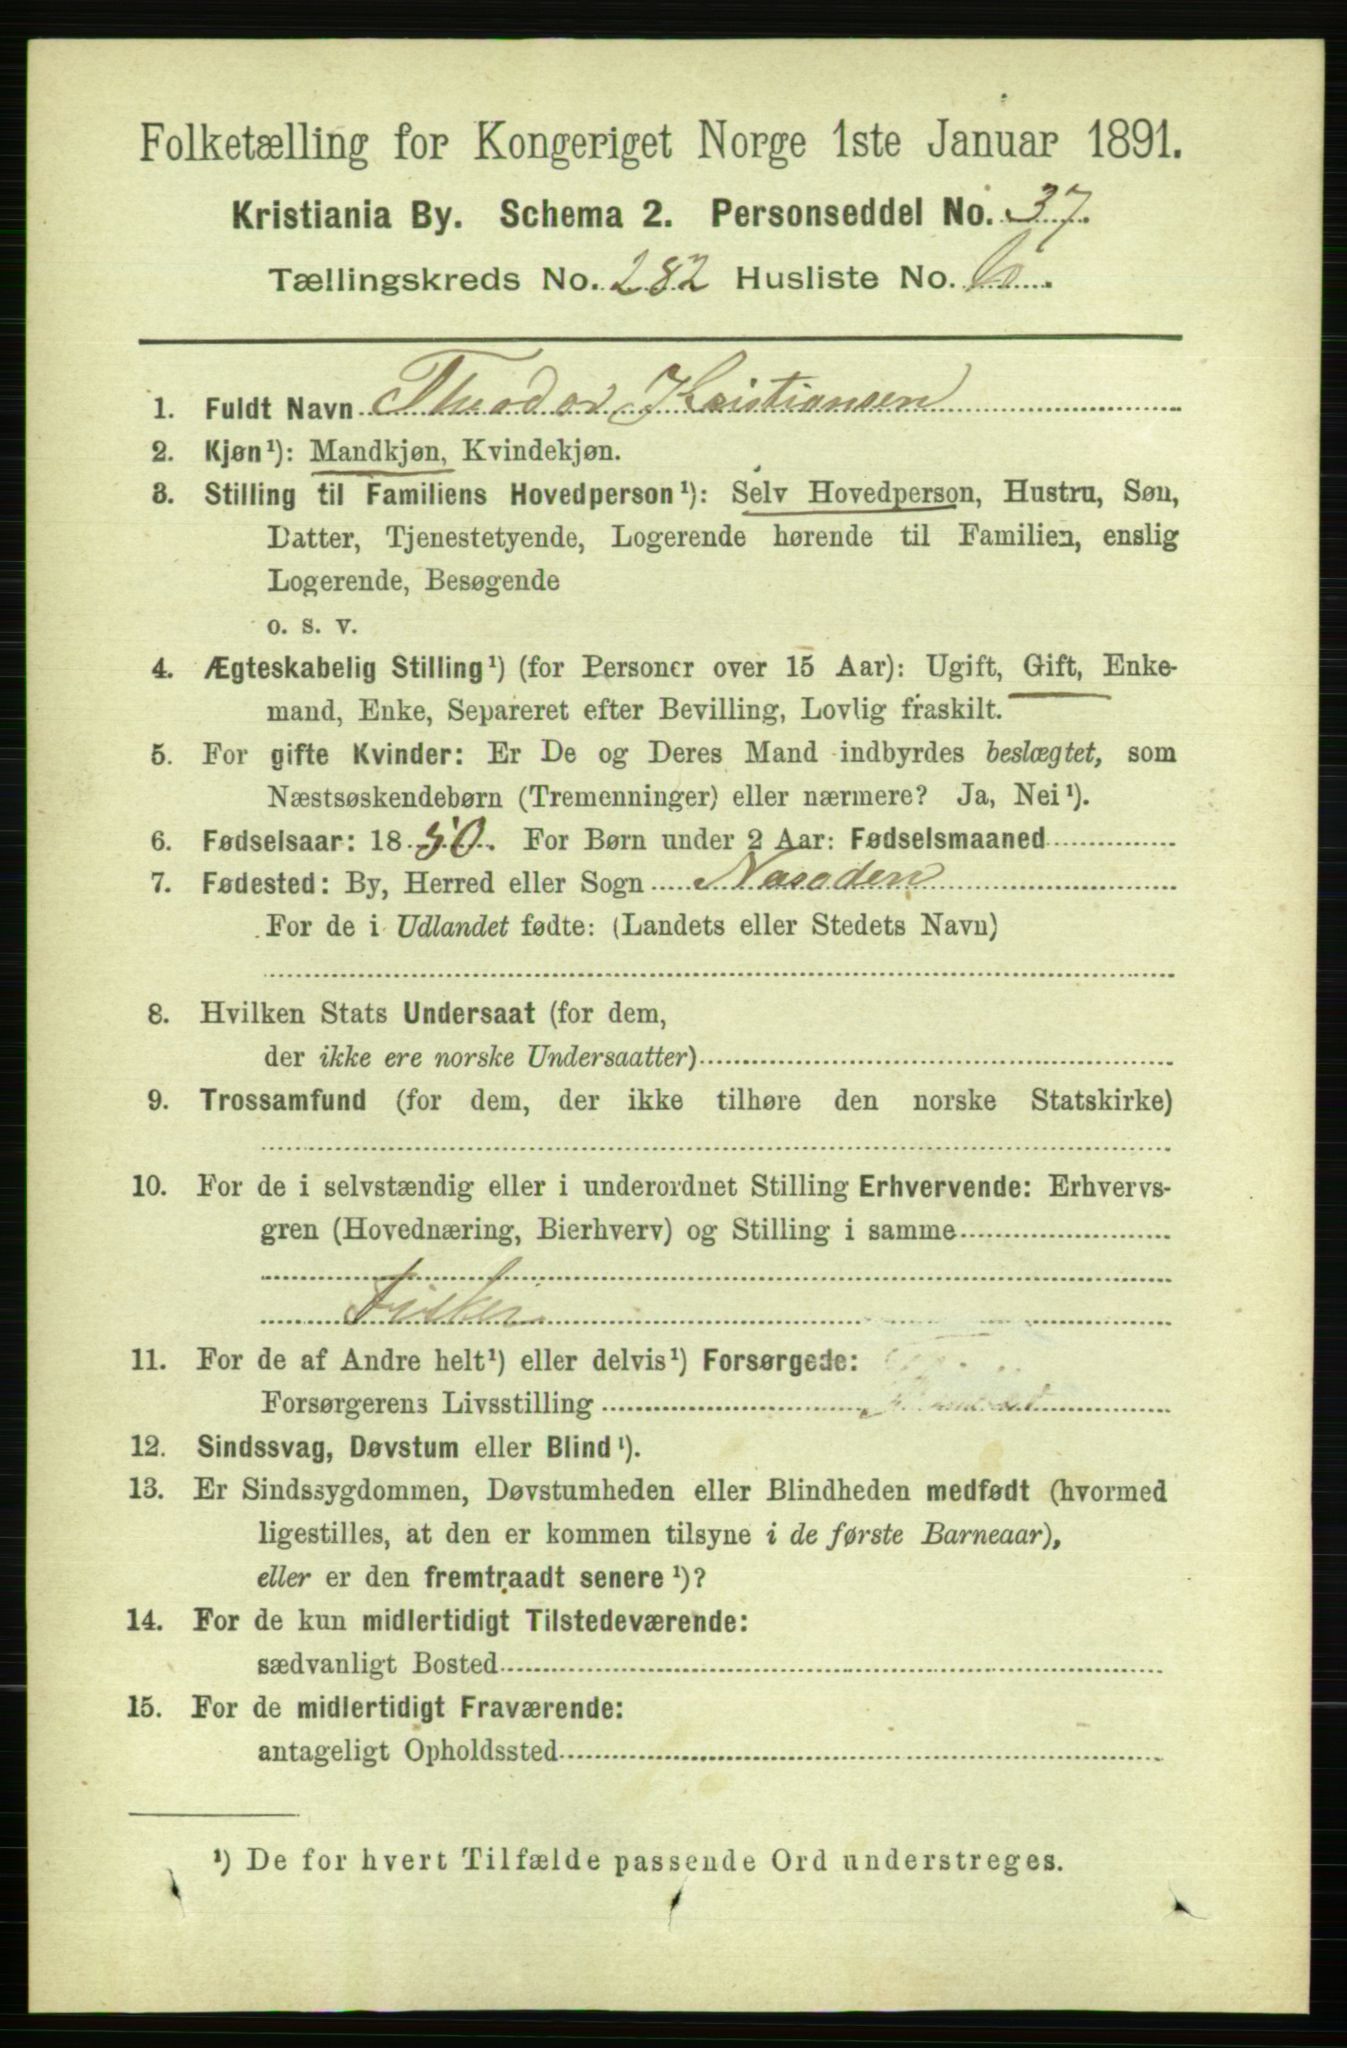 Folketælling for Kongeriget Norge 1ste Januar 1891.
Kristiania By. Schema 2. Personseddel No. 37.
Tællingskreds No. 282 Husliste No. 6.
1. Fuldt Navn Theodor Kristiansen
2. Kjøn¹): Mandkjøn, Kvindekjøn.
3. Stilling til Familiens Hovedperson¹): Selv Hovedperson, Hustru, Søn,
Datter, Tjenestetyende, Logerende hørende til Familien, enslig
Logerende, Besøgende
o. s. v.
4. Ægteskabelig Stilling¹) (for Personer over 15 Aar): Ugift, Gift, Enke-
mand, Enke, Separeret efter Bevilling, Lovlig fraskilt.
5. For gifte Kvinder: Er De og Deres Mand indbyrdes beslægtet, som
Næstsøskendebørn (Tremenninger) eller nærmere? Ja, Nei¹).
6. Fødselsaar: 1850. For Børn under 2 Aar: Fødselsmaaned
7. Fødested: By, Herred eller Sogn Nasoden
For de i Udlandet fødte: (Landets eller Stedets Navn)
8. Hvilken Stats Undersaat (for dem,
der ikke ere norske Undersaatter)
9. Trossamfund (for dem, der ikke tilhøre den norske Statskirke)
10. For de i selvstændig eller i underordnet Stilling Erhvervende: Erhvervs-
gren (Hovednæring, Bierhverv) og Stilling i samme
Fisker
11. For de af Andre helt¹) eller delvis¹) Forsørgede:
Forsørgerens Livsstilling
12. Sindssvag, Døvstum eller Blind¹).
13. Er Sindssygdommen, Døvstumheden eller Blindheden medfødt (hvormed
ligestilles, at den er kommen tilsyne i de første Barneaar),
eller er den fremtraadt senere¹)?
14. For de kun midlertidigt Tilstedeværende:
sædvanligt Bosted
15. For de midlertidigt Fraværende:
antageligt Opholdssted
¹) De for hvert Tilfælde passende Ord understreges.